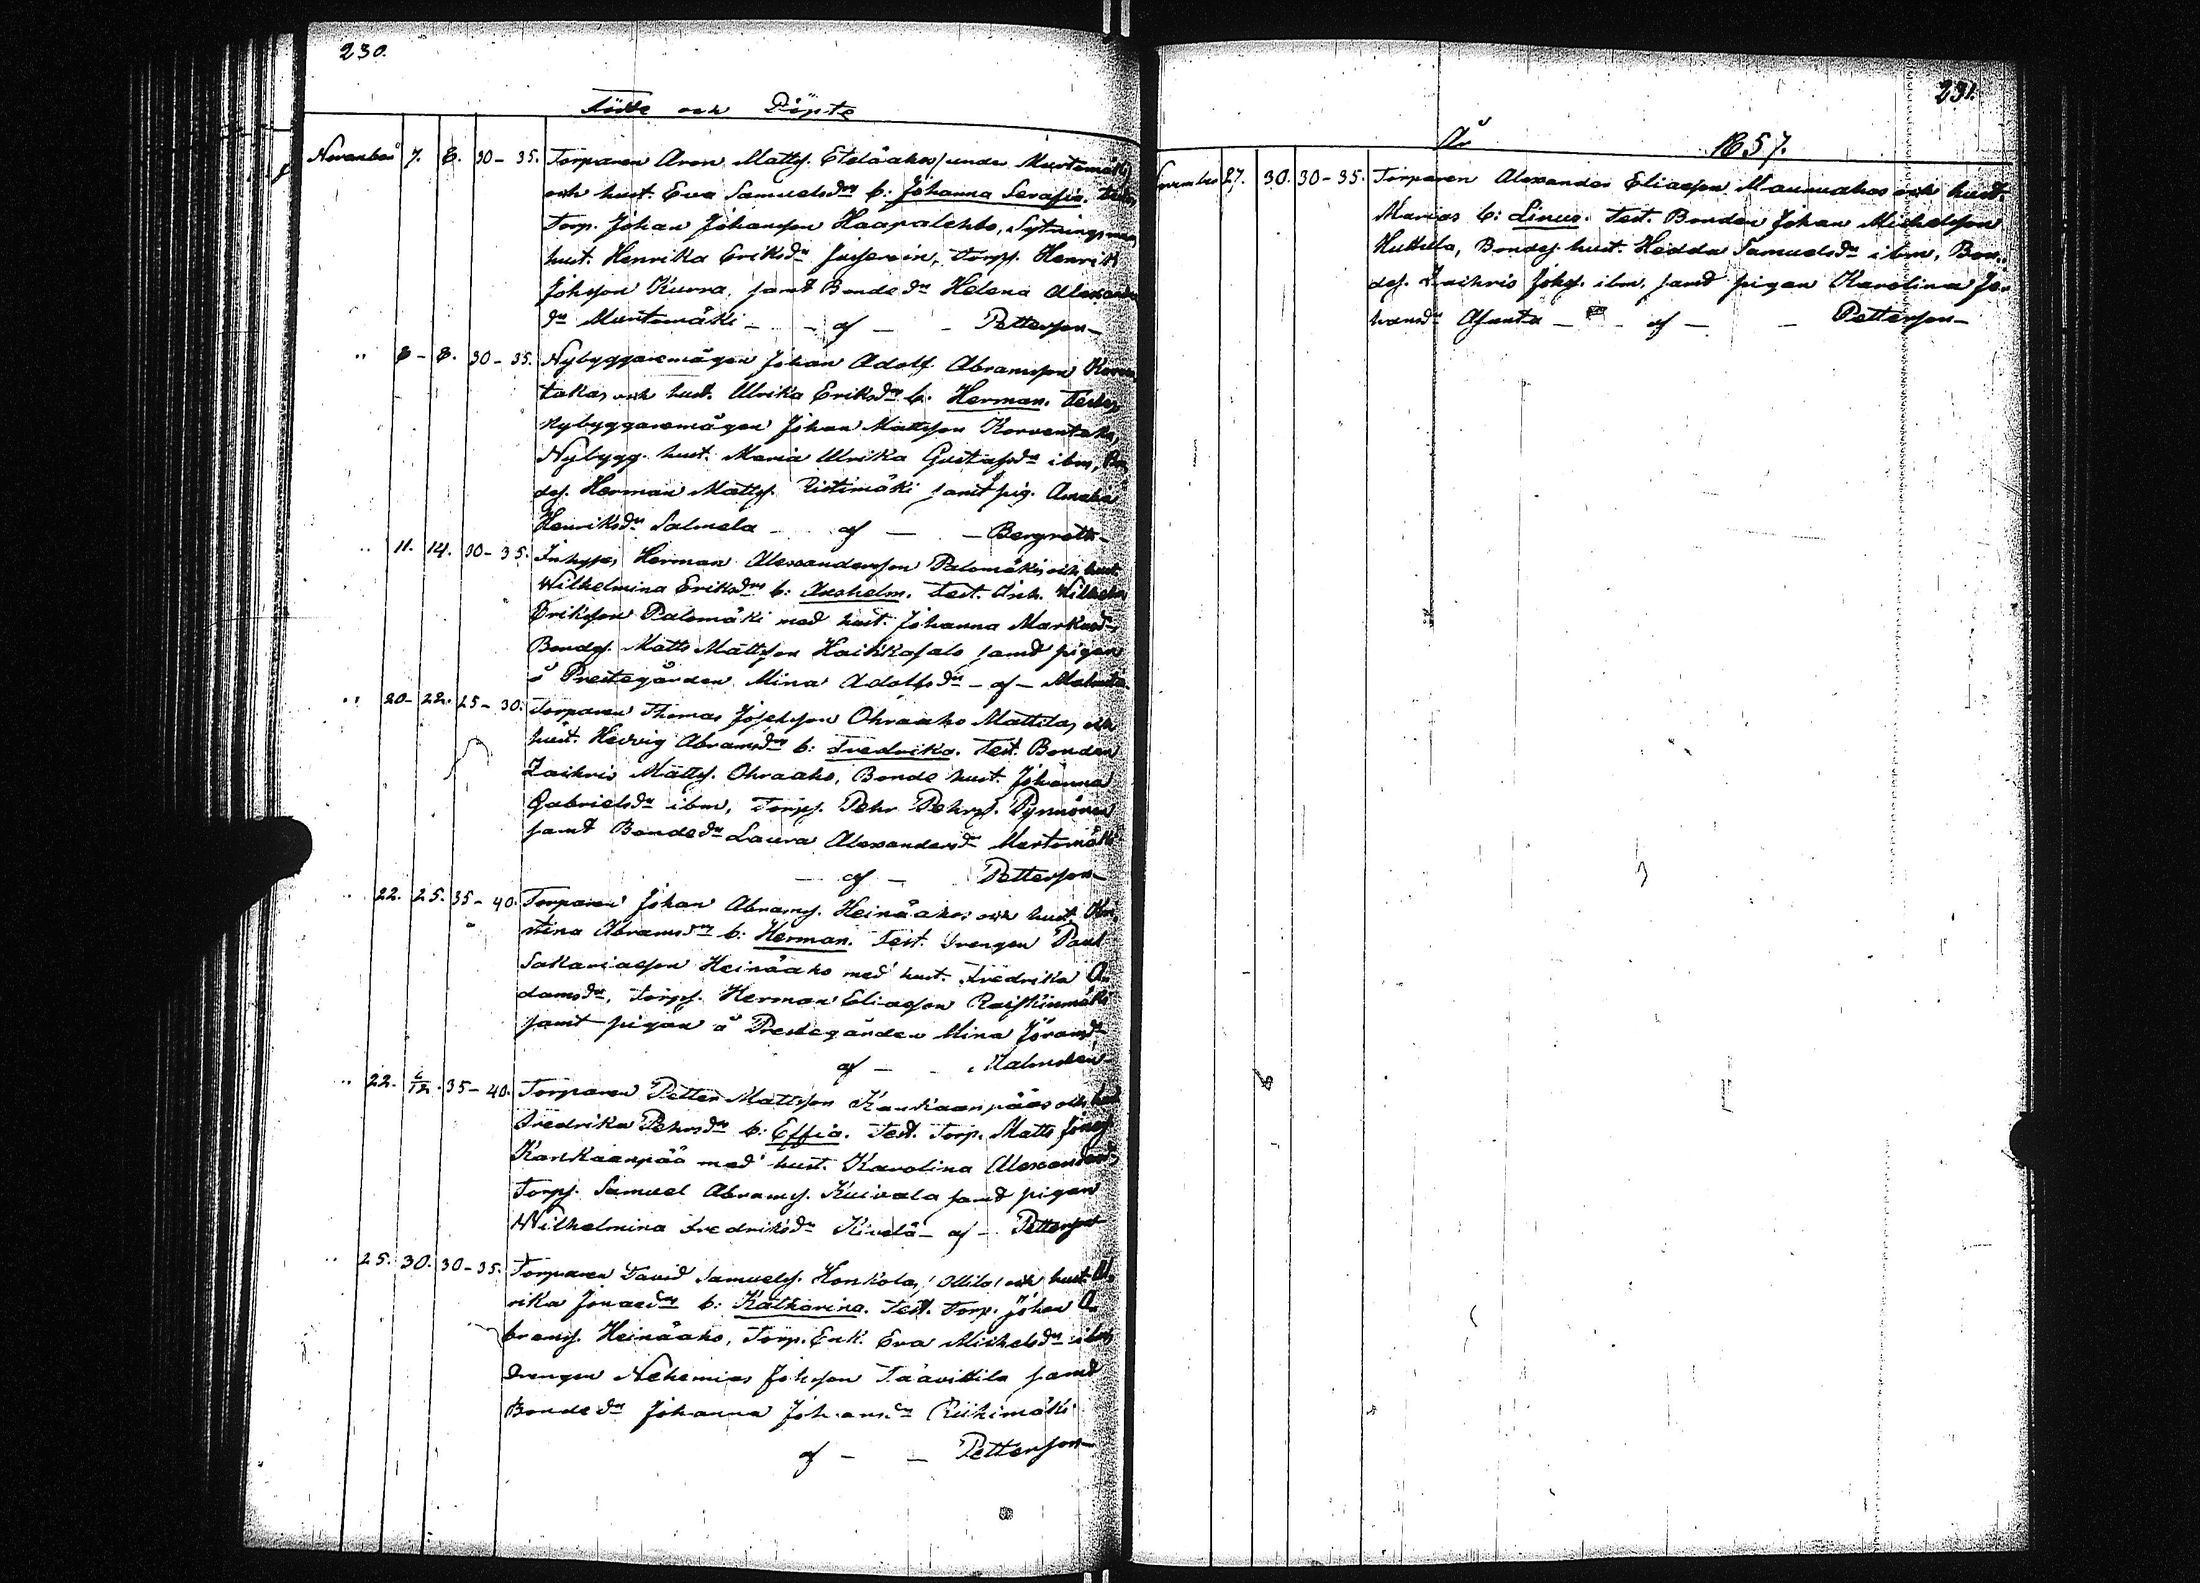 230.
Födde och Döpte
November 7. 8. 30-35. Torparen Aron Mattss. Eteläaho, under Murtomäki
och hust. Eva Samuelsdrs b: Johanna Serafia.
Torp. Johan Johansson Haapalehto, Sytningsm
hust. Henrika Eriksdr, Torps. Henrik
Johsson Kurra, samt Bonde dr Helena Alexander
dr Murtomäki - - af - - Petterson -
" 8 - 8. 30-35. Nybyggaremågen Johan Adolf Abramsson Korven
takas och hust. Ulrika Eriksdrs b. Herman. Testes
Nybyggaremågen Johan Mattsson Korventaka,
Nybygg. hust. Maria Ulrika Gustafsdr ibm, Bon
des. Herman Mattss. Ristimäki samt pig. Amalia
Henriksdr Salmela - af - - Bergroth -
" 11. 14. 30-35. Inhyses Herman Alexandersson Palomäkis och hust.
Wilhelmina Eriksdrs b: Axshelm. Test. Inh. Wilhelm
Eriksson Palomäki med hust. Johanna Markusdr,
Bondes. Matts Mattsson Haikkasalo samt pigan
å Prestegården Mina Adolfsdr - af - Malmb
" 20 - 22. 25-30. Torparen Thomas Josefsson Ohraaho Mattilas och
hust. Hedvig Abramsdrs b: Fredrika. Test. Bonden
Zachris Mattss. Ohraaho, Bonde hust. Johanna
Gabrielsdr ibm, Torps. Pehr Pehrss. Pynnönen
samt Bonde dr Laura Alexandersdr Murtomäki
- af - Petterson -
" 22. 25. 35-40. Torparen Johan Abramss. Heinäahos och hust. Kri
stina Abramsdrs b: Herman. Test. Drengen Paul
Sakariasson Heinäaho med hust. Fredrika A
damsdr, Torps. Herman Eliasson Raiskinmäki
samt pigan å Prestegården Mina Göransdr
af - - Malm
" 22. 35-40. Torparen Petter Mattsson Kankaanpääs och hust
Fredrika Pehrsdrs b: Effia. Test. Torp. Matts Jonss
Kankaanpää med hust. Karolina Alexandersdr,
Torps. Samuel Abramss. Kuivala samt pigan
Wilhelmina Fredriksdr Kivelä - af - Petterson
" 25. 30. 30-35. Torparen David Samuelss. Honkola, Ollila och hust. Ul
rika Jonaedrs b: Katharina. Test. Torp. Johan A
bramss. Heinäaho, Torp. Enk. Eva Michelsdr ibm
Drengen Nehemias Johsson Taavittila samt
Bonde dr Johanna Johansdr Riihimäki
af - - Petterson -
231.
År 1857.
November 27. 30. 30-35. Torparen Alexander Eliasson Maunuahos och hust.
Marias b: Linus. Test. Bonden Johan Michelsson
Huttula, Bondes hust. Hedda Samuelsdr ibm, Bon
des. Zachris Johss. ibm, samt pigan Karolina Jo
hansdr Asunta - af - - Petterson -